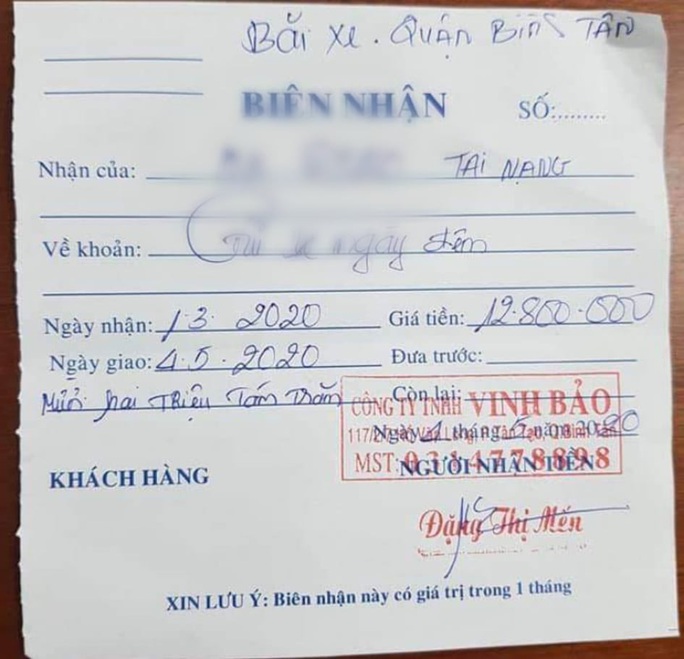 BÃI XE. QUẬN BÌNH TÂN
BIÊN NHẬN SỐ:.........
Nhận của: TAI NẠNG
Về khoản: Gửi xe ngày đêm
Ngày nhận: 1.3. 2020 Giá tiền: 12.800.000
Ngày giao: 4.5.2020 Đưa trước:
Mười hai Triệu Tám Trăm Còn lại:
CÔNG TY TNHH VINH BẢO
Ngày 4 tháng 5 năm 2020
MST:
KHÁCH HÀNG NGƯỜI NHẬN TIỀN
Đặng Thị Mến
XIN LƯU Ý: Biên nhận này có giá trị trong 1 tháng